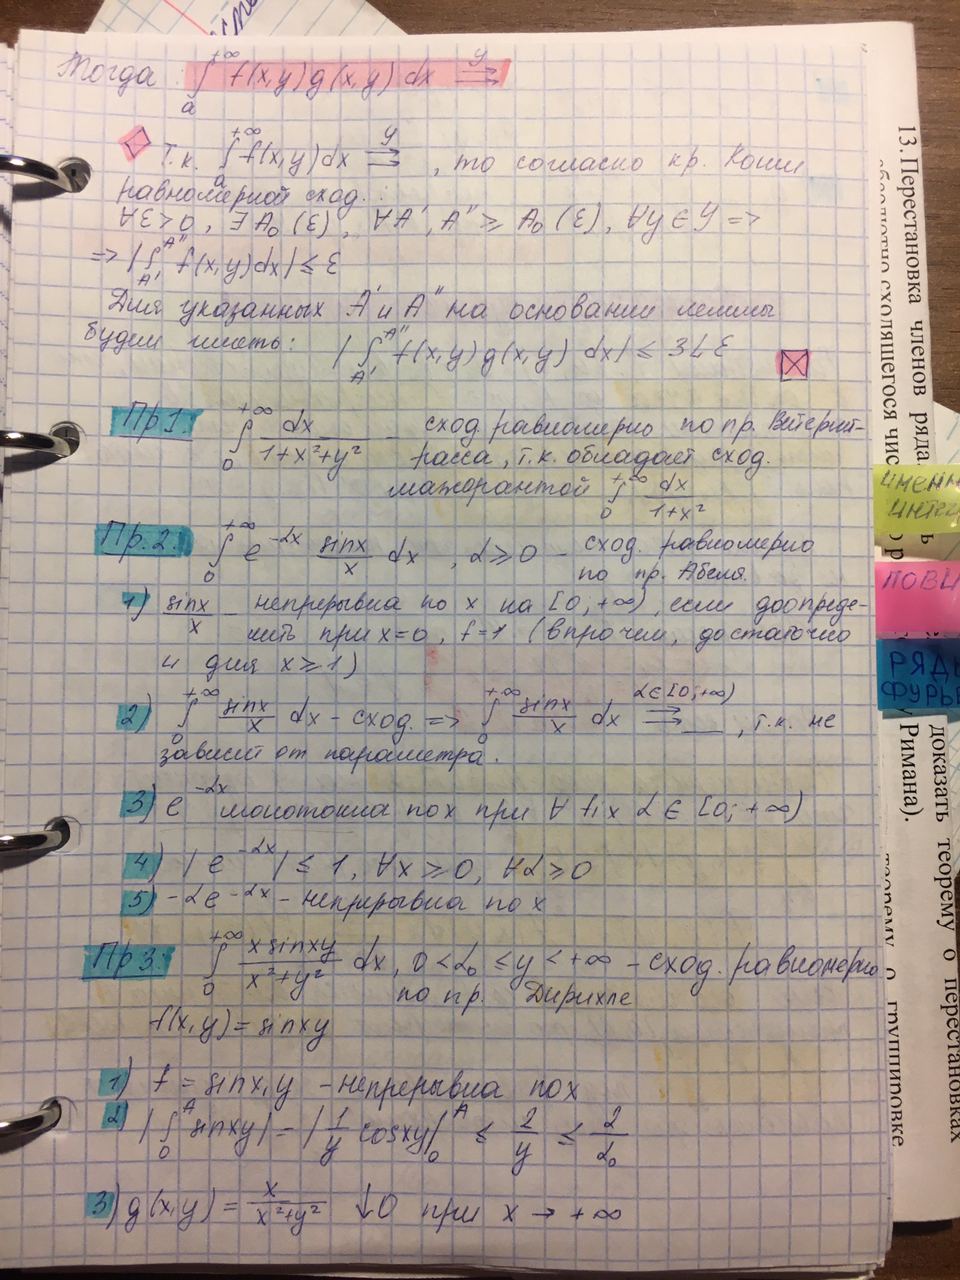 Тогда ∫ₐ^{+∞} f(x,y)g(x,y)dx ⇉^Y
Т.к. ∫ₐ^{+∞} f(x,y)dx ⇉^Y, то согласно кр. Коши
равномерной сход.:
∀ε>0, ∃A₀(ε), ∀A', A'' ⩾ A₀(ε), ∀y∈Y =>
=> |∫_{A'}^{A''} f(x,y)dx| ≤ ε
Для указанных A' и A'' на основании леммы
будем иметь: |∫_{A'}^{A''} f(x,y)g(x,y)dx| ≤ 3Lε
Пр 1. ∫₀^{+∞} dx/(1+x²+y²) - сход. равномерно по пр. Вейершт-
расса, т.к. обладает сход.
мажорантой ∫₀^{+∞} dx/(1+x²)
Пр. 2. ∫₀^{+∞} e^{-αx} sinx/x dx, α⩾0 - сход. равномерно
по пр. Абеля.
1) sinx/x - непрерывна по x на [0;+∞), если доопреде-
лить при x=0, f=1 (впрочем, достаточно
и для x⩾1)
2) ∫₀^{+∞} sinx/x dx - сход. => ∫₀^{+∞} sinx/x dx ⇉^{α∈[0;+∞)} __, т.к. не
зависит от параметра.
3) e^{-αx} монотонна по x при ∀ fix α∈[0;+∞)
4) |e^{-αx}| ≤ 1, ∀x⩾0, ∀α⩾0
5) -αe^{-αx} - непрерывна по x
Пр 3. ∫₀^{+∞} x sinxy/(x²+y²) dx, 0<α₀≤y<+∞ - сход. равномерно
по пр. Дирихле
f(x,y)= sinxy
1) f = sinx,y - непрерывна по x
2) |∫₀^A sinxy| = |1/y cosxy|₀^A ≤ 2/y ≤ 2/α₀
3) g(x,y) = x/(x²+y²) ↓0 при x → +∞
13. Перестановка членов ряда
доказать теорему о перестановках
Римана).
теорему о группировке
ПОВ
РЯД
ФУРЬЕ